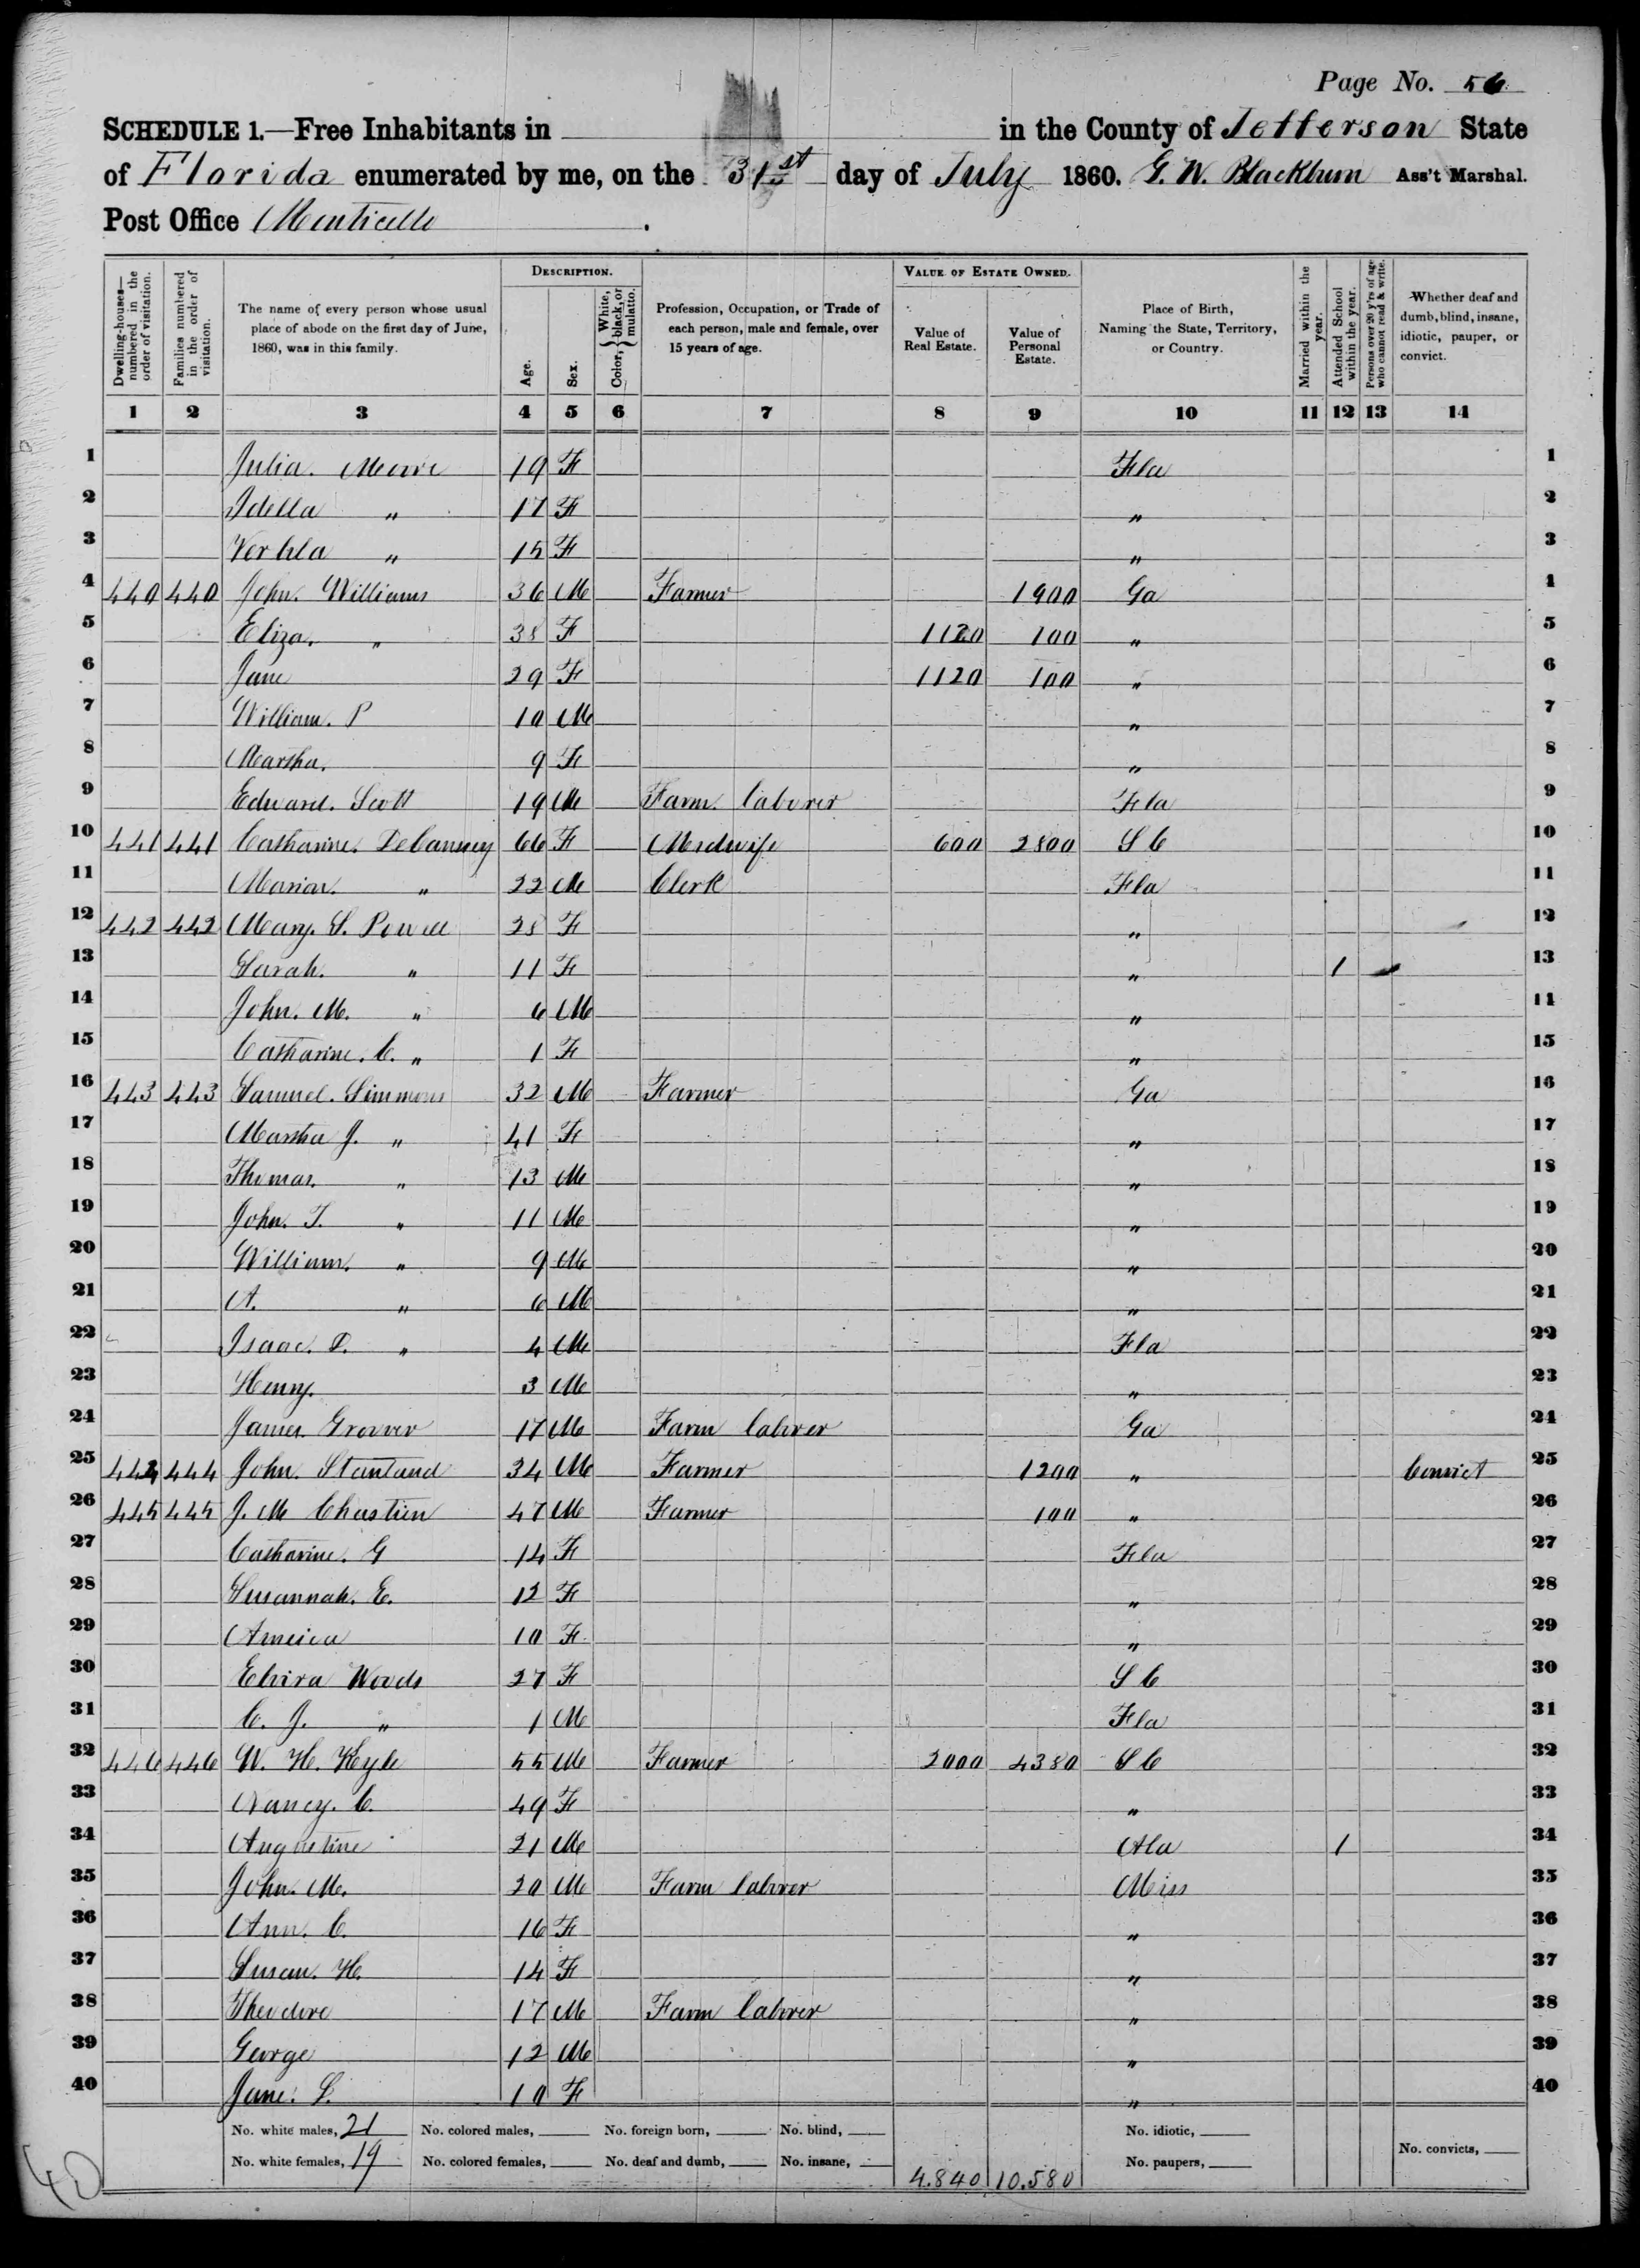 Page No. 56
SCHEDULE 1.—Free Inhabitants in in the County of Jefferson State
of Florida enumerated by me, on the 31st day of July 1860. G. W. Blackburn Ass't Marshal.
Post Office Monticello.
Dwelling-houses—numbered in the order of visitation. Families numbered in the order of visitation. The name of every person whose usual place of abode on the first day of June, 1860, was in this family. DESCRIPTION. Age. Sex. Color, {White, black, or mulatto. Profession, Occupation, or Trade of each person, male and female, over 15 years of age. VALUE OF ESTATE OWNED. Value of Real Estate. Value of Personal Estate. Place of Birth, Naming the State, Territory, or Country. Married within the year. Attended School within the year. Persons over 20 y'rs of age who cannot read & write. Whether deaf and dumb, blind, insane, idiotic, pauper, or convict.
1 2 3 4 5 6 7 8 9 10 11 12 13 14
1 Julia. Moore 19 F Fla 1
2 Idella " 17 F " 2
3 " 15 F " 3
4 440 440 John. Williams 36 M Farmer 1900 Ga 4
5 Eliza. " 38 F 1120 100 " 5
6 Jane 29 F 1120 100 " 6
7 William. P 10 M " 7
8 Martha. 9 F " 8
9 Edward. Scott 19 M Farm. laborer Fla 9
10 441 441 Catharine. 66 F Midwife 600 2800 S C 10
11 Marion. " 22 M Clerk Fla 11
12 442 442 Mary. S. Powell 28 F " 12
13 Sarah. " 11 F " 1 13
14 John. M. " 6 M " 14
15 Catharine. C. " 1 F " 15
16 443 443 Samuel. Simmons 32 M Farmer Ga 16
17 Martha J. " 41 F " 17
18 Thomas. " 13 M " 18
19 John. T. " 11 M " 19
20 William. " 9 M " 20
21 A. " 6 M " 21
22 Isaac. D. " 4 M Fla 22
23 Henry. 3 M " 23
24 James. Groover 17 M Farm laborer Ga 24
25 444 444 John. Stanland 34 M Farmer 1200 " Convict 25
26 445 445 J. M Chastien 47 M Farmer 100 " 26
27 Catharine. G 14 F Fla 27
28 Susannah. E. 12 F " 28
29 10 F " 29
30 Elvira Woods 27 F S C 30
31 C. J. " 1 M Fla 31
32 446 446 W. H. Kyle 55 M Farmer 2000 4380 S C 32
33 Nancy. C. 49 F " 33
34 Augustine 21 M Ala 1 34
35 John. M. 20 M Farm laborer Miss 35
36 Ann. C. 16 F " 36
37 Susan. H. 14 F " 37
38 Theodore 17 M Farm laborer " 38
39 George 12 M " 39
40 Jane. S. 10 F " 40
No. white males, 21 No. colored males, No. foreign born, No. blind, No. idiotic,
No. white females, 19 No. colored females, No. deaf and dumb, No. insane, 4.840 10.580 No. paupers, No. convicts,
40